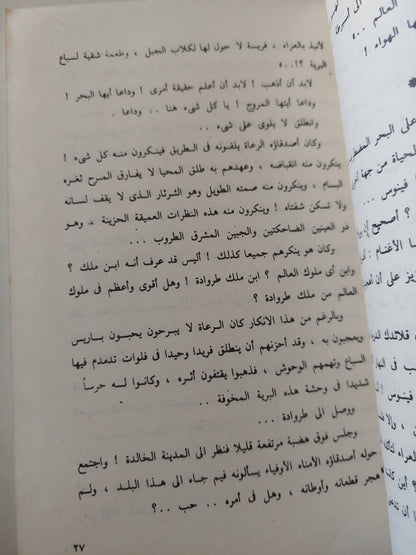 لانبذ بالعراء ، فريسة لا حول لها لكلاب الجبل ، وطعمة شقية لسباع
البرية ؟!..»
لابد أن أذهب ! لابد أن أعلم حقيقة أمرى ! وداعا أيها البحر !
وداعا أيتها المروج ! يا كل شىء هنا .. وداعا !
وانطلق لا يلوى على شىء ..
وكان أصدقاؤه الرعاة يلقونه فى الطريق فينكرون منه كل شىء !
ينكرون منه انقباضه ، وعهدهم به طلق المحيا لا يفارق المرح ثغره
البسام ، وينكرون منه صمته الطويل وهو الثرثار الذى لا يقف لسانه
ولا تسكن شفتاه ! وينكرون منه هذه النظرات العميقة الحزينة ، وهو
ذو العينين الضاحكتين والجبين المشرق الطروب ...
وكان هو ينكرهم جميعا كذلك ! أليس قد عرف أنه ابن ملك ؟
وابن أى ملوك العالم ؟ ابن ملك طروادة ! وهل أقوى وأعظم فى ملوك
العالم من ملك طروادة ؟
وبالرغم من هذا الانكار كان الرعاة لا يبرحون يحبون باريس
ويعجبون به ، وقد أحزنهم أن ينطلق فريدا وحيدا فى فلوات تدمدم فيها
السباع وتهمهم الوحوش ، فذهبوا يقتفون أثره ، وكانوا له حرساً
شديدا فى وحشة هذه البرية المخوفة ..
ووصل الى طروادة ..
وجلس فوق هضبة مرتفعة قليلا فنظر الى المدينة الخالدة ! واجتمع
حوله أصدقاؤه الأمناء الأوفياء يسألونه فيم جاء الى هذا البلد ، ولم
هجر قطعانه وأوطانه ، وهل فى أمره .. حب ..؟
٢٧
العالم ..»
هذا الهواء !
*
على البحر
الحياة من جهة
فينوس ...
؟ أصحيح أن
الأغنام :
عزيز على أن
فينوس
العراء
ابن